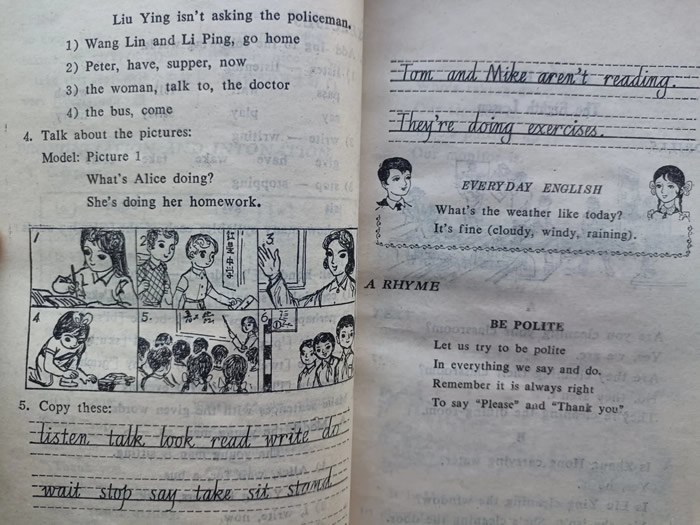 Liu Ying isn't asking the policeman.
1) Wang Lin and Li Ping, go home
2) Peter, have, supper, now
3) the woman, talk to, the doctor
4) the bus, come
4. Talk about the pictures:
Model: Picture 1
What's Alice doing?
She's doing her homework.
1
2
3
4
5.
6
5. Copy these:
listen talk look read write do
wait stop say take sit stand
Tom and Mike aren't reading.
They're doing exercises.
EVERYDAY ENGLISH
What's the weather like today?
It's fine (cloudy, windy, raining).
A RHYME
BE POLITE
Let us try to be polite
In everything we say and do.
Remember it is always right
To say "Please" and "Thank you".